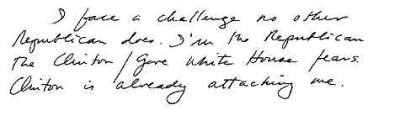 I face a challenge no other
Republican does. I'm the Republican
the Clinton/Gore White House fears.
Clinton is already attacking me.